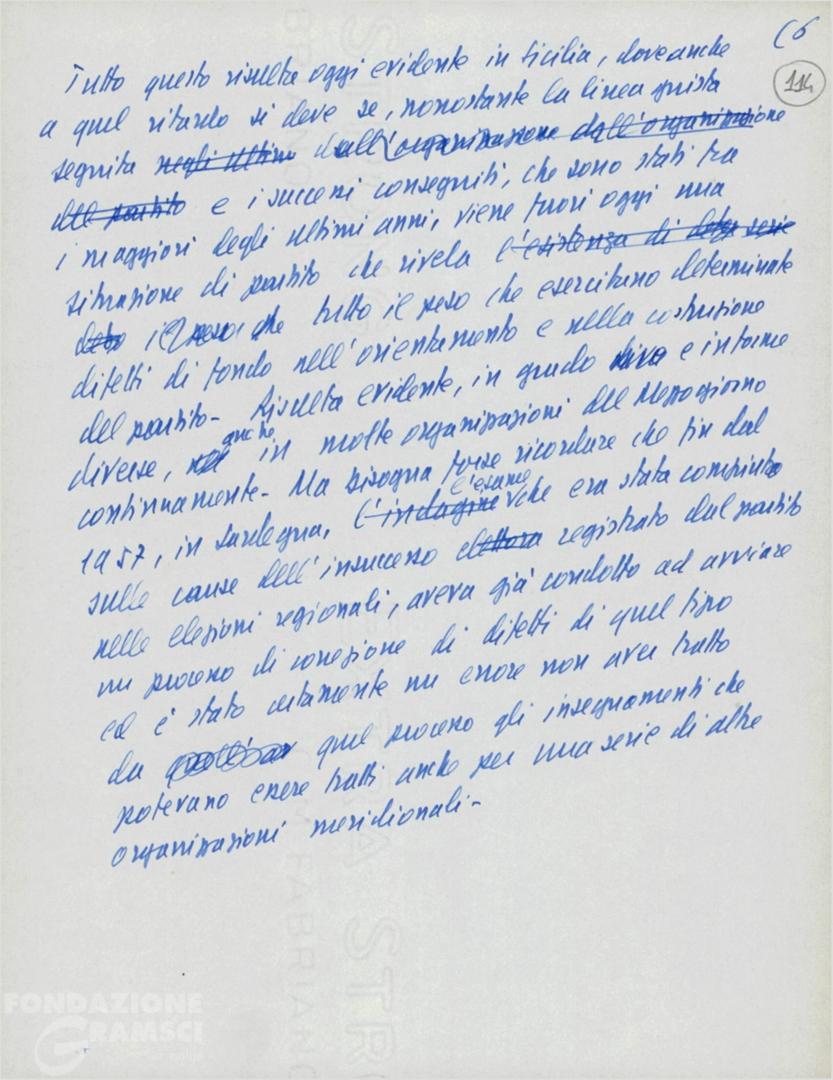 C6
114
Tutto questo risulta oggi evidente in Sicilia, dove anche
a quel ritardo si deve se, nonostante la linea giusta
seguita negli ultimi dall'organizzazione dall'organizzazione
del partito e i successi conseguiti, che sono stati tra
i maggiori degli ultimi anni, viene fuori oggi una
situazione di partito che rivela l'esistenza di deter serie
deter il peso che tutto il peso che esercitano determinate
difetti di fondo nell'orientamento e nella costruzione
del partito- Risulta evidente, in grado diverso e in forme
diverse, anche in molte organizzazioni del Mezzogiorno
continuamente- Ma bisogna forse ricordare che fin dal
1957, in Sardegna, l'indagine l'esame che era stata compiuto
sulle cause dell'insuccesso elettora registrato dal partito
nelle elezioni regionali, aveva già condotto ad avviare
un processo di correzione di difetti di quel tipo
ed è stato certamente un errore non aver tratto
da quel processo gli insegnamenti che
potevano essere tratti anche per una serie di altre
organizzazioni meridionali-
FONDAZIONE
GRAMSCI